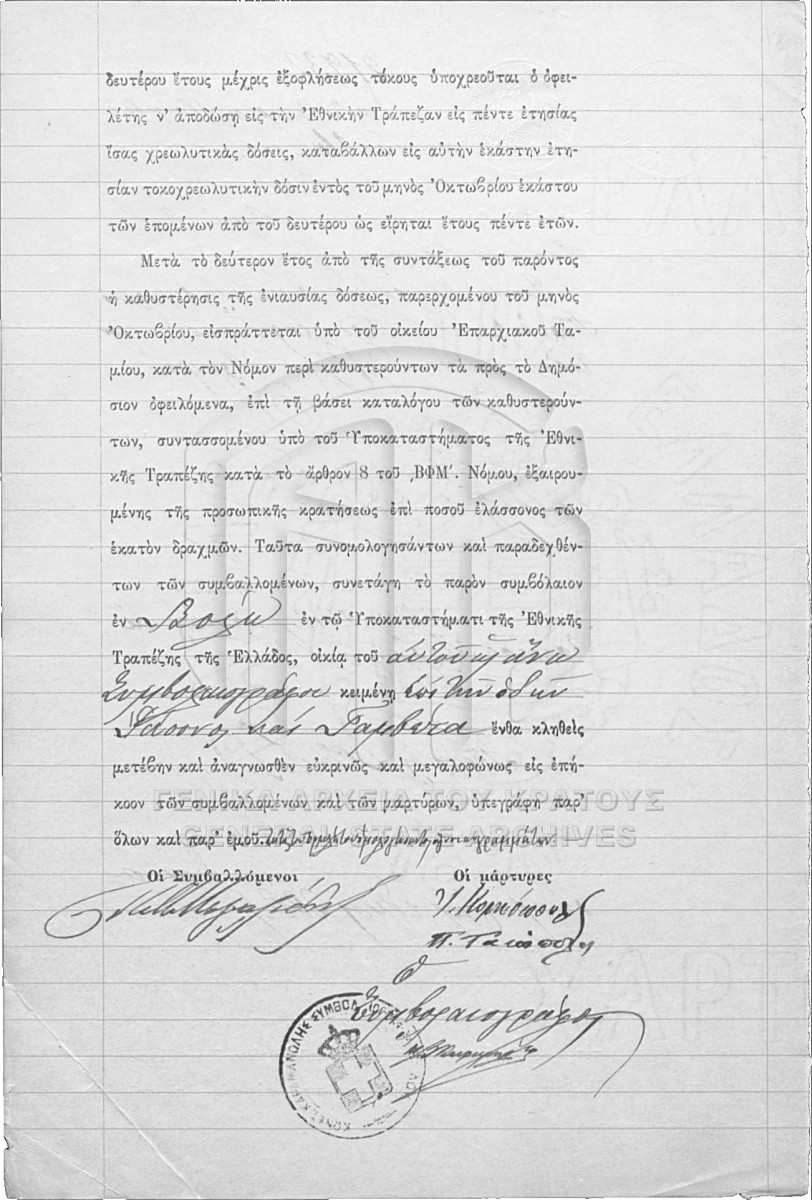 δευτέρου ἔτους μέχρις ἐξοφλήσεως τόκους ὑποχρεοῦται ὁ ὀφει-
λέτης ν' ἀποδώσῃ εἰς τὴν Ἐθνικὴν Τράπεζαν εἰς πέντε ἐτησίας
ἴσας χρεωλυτικὰς δόσεις, καταβάλλων εἰς αὐτὴν ἑκάστην ἐτη-
σίαν τοκοχρεωλυτικὴν δόσιν ἐντὸς τοῦ μηνὸς Ὀκτωβρίου ἑκάστου
τῶν ἑπομένων ἀπὸ τοῦ δευτέρου ὡς εἴρηται ἔτους πέντε ἐτῶν.
Μετὰ τὸ δεύτερον ἔτος ἀπὸ τῆς συντάξεως τοῦ παρόντος
ἡ καθυστέρησις τῆς ἐνιαυσίας δόσεως, παρερχομένου τοῦ μηνὸς
Ὀκτωβρίου, εἰσπράττεται ὑπὸ τοῦ οἰκείου Ἐπαρχιακοῦ Τα-
μίου, κατὰ τὸν Νόμον περὶ καθυστερούντων τὰ πρὸς τὸ Δημό-
σιον ὀφειλόμενα, ἐπὶ τῇ βάσει καταλόγου τῶν καθυστερούν-
των, συντασσομένου ὑπὸ τοῦ Ὑποκαταστήματος τῆς Ἐθνι-
κῆς Τραπέζης κατὰ τὸ ἄρθρον 8 τοῦ ͵ΒΦΜ΄. Νόμου, ἐξαιρου-
μένης τῆς προσωπικῆς κρατήσεως ἐπὶ ποσοῦ ἐλάσσονος τῶν
ἑκατὸν δραχμῶν. Ταῦτα συνομολογησάντων καὶ παραδεχθέν-
των τῶν συμβαλλομένων, συνετάγη τὸ παρὸν συμβόλαιον
ἐν Βόλῳ ἐν τῷ Ὑποκαταστήματι τῆς Ἐθνικῆς
Τραπέζης τῆς Ἑλλάδος, οἰκίᾳ τοῦ
Συμβολαιογράφου κειμένῃ ἐπὶ τῆς ὁδοῦ
Ἰάσονος καὶ Γαμβέτα ἔνθα κληθεὶς
μετέβην καὶ ἀναγνωσθὲν εὐκρινῶς καὶ μεγαλοφώνως εἰς ἐπή-
κοον τῶν συμβαλλομένων καὶ τῶν μαρτύρων, ὑπεγράφη παρ'
ὅλων καὶ παρ' ἐμοῦ.
ΓΕΝΙΚΑ ΑΡΧΕΙΑ ΤΟΥ ΚΡΑΤΟΥΣ
GENERAL STATE ARCHIVES
Οἱ Συμβαλλόμενοι Οἱ μάρτυρες
Ὁ
Συμβολαιογράφος